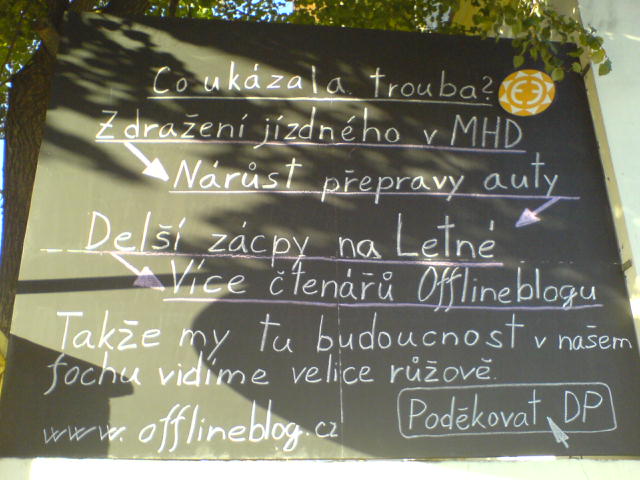 Co ukázala trouba?
Zdražení jízdného v MHD
Nárůst přepravy auty
Delší zácpy na Letné
Více čtenářů Offlineblogu
Takže my tu budoucnost v našem
fochu vidíme velice růžově.
Poděkovat DP
www.offlineblog.cz